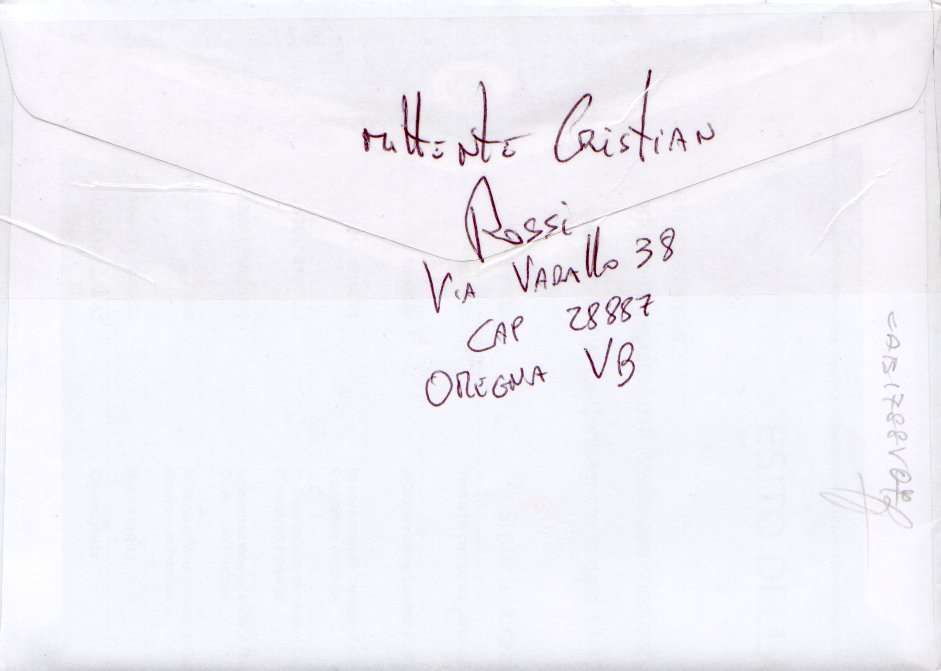 mittente Cristian
Rossi
Via Varallo 38
CAP 28887
Omegna VB